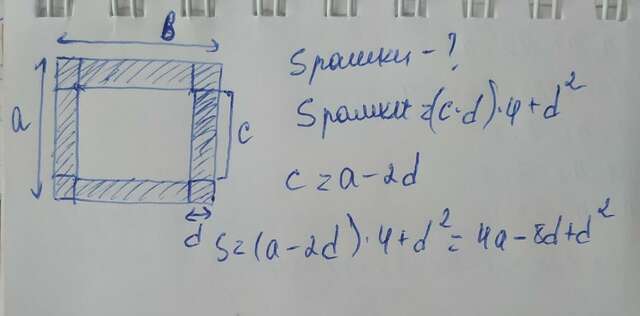 в
a
c
d
Sрамки - ?
Sрамки = (c·d)·4+d²
c = a-2d
S=(a-2d)·4+d² = 4a-8d+d²